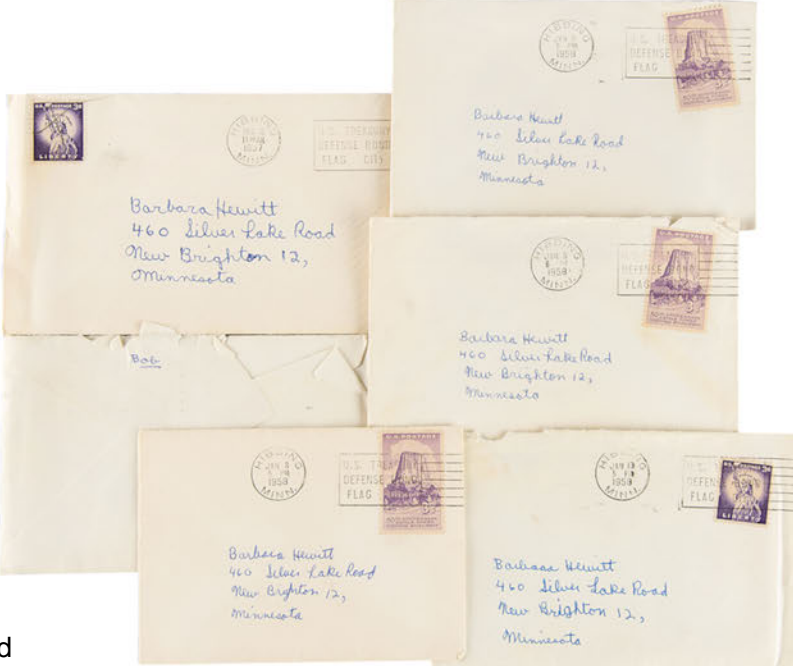 HIBBING
MINN.
1957
U.S. TREASURY
DEFENSE BOND
FLAG CITY
U.S. POSTAGE 3¢
LIBERTY
Barbara Hewitt
460 Silver Lake Road
New Brighton 12,
Minnesota
HIBBING
JAN
PM
1958
MINN.
U.S.
DEFENSE
FLAG
U.S. POSTAGE
Barbara Hewitt
460 Silver Lake Road
New Brighton 12,
Minnesota
HIBBING
JAN
PM
1958
MINN.
DEFENSE BOND
FLAG
U.S. POSTAGE
3¢
Barbara Hewitt
460 Silver Lake Road
New Brighton 12,
Minnesota
Bob
HIBBING
JAN
PM
1958
MINN.
U.S.
DEFENSE
FLAG
U.S. POSTAGE
Barbara Hewitt
460 Silver Lake Road
New Brighton 12,
Minnesota
HIBBING
JAN 13
PM
1958
MINN.
U.S.
DEFENSE
FLAG
LIBERTY
Barbara Hewitt
460 Silver Lake Road
New Brighton 12,
Minnesota
d